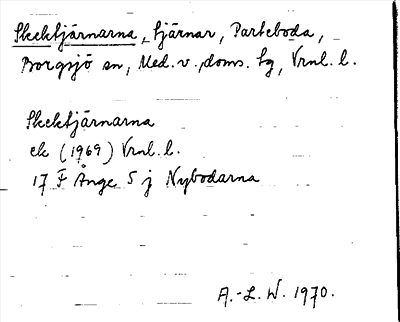 Skektjärnarna, tjärnar, Parteboda,
Borgsjö sn, Med. v. doms. tg, Vrnl. l.
Skektjärnarna
ek (1969) Vrnl. l.
17 F Ånge 5 j Nybodarna
A.-L. W. 1970.